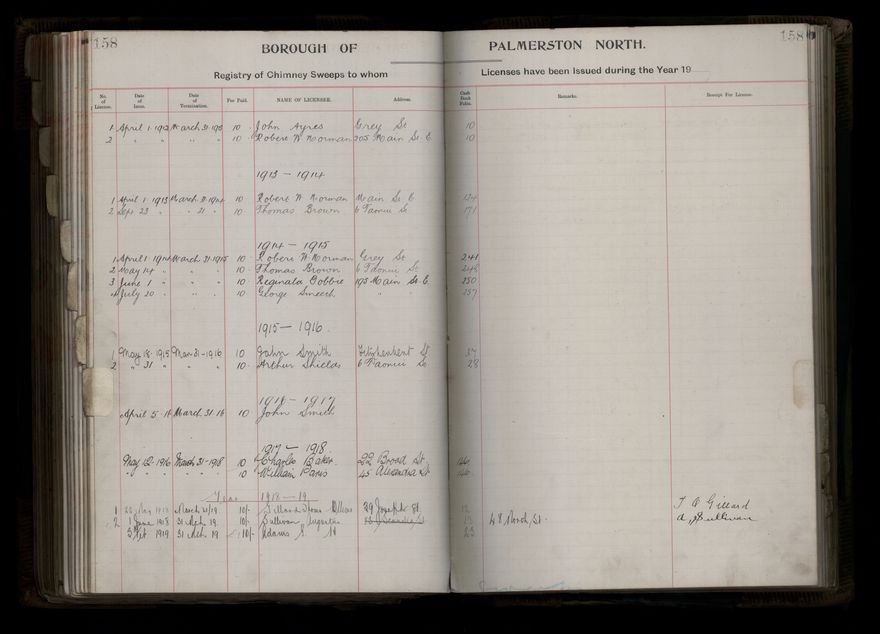 158
158
BOROUGH OF PALMERSTON NORTH.
Registry of Chimney Sweeps to whom Licenses have been issued during the Year 19
No. of License. Date of Issue. Date of Termination. Fee Paid. NAME OF LICENSEE. Address. Cash Book Folio. Remarks. Receipt For License.
1 April 1 1912 March 31 1913 10 John Ayres Grey St 10
2 " " " " 10 Robert W Norman 205 Main St. E. 10
1913 – 1914
1 April 1 1913 March 31 1914 10 Robert W Norman Main St E 124
2 Sept 23 " 31 " 10 Thomas Brown 6 Taonui St 171
1914 – 1915
1 April 1 1914 March 31 1915 10 Robert W Norman Grey St 241
2 May 14 " " " 10 Thomas Brown 6 Taonui St 248
3 June 1 " " " 10 Reginald Cobbie 195 Main St. E. 250
4 July 20 " " " 10 George Smeech " " 257
1915 – 1916.
1 May 18 1915 Mar 31-1916 10 John Smith St 37
2 " 31 " " " 10 Arthur Shields 6 Taonui St 28
1916 – 1917
April 5 16 March 31 16 10 John Smith
1917 – 1918
May 12 1916 March 31-1918 10 Charles Baker 22 Broad St
" " " " 10 William Paris 45 Alexandra St
Year 1918-19
1 May 1918 March 31/19 10/- Gillard 29 Joseph St. 12 T A Gillard
2 1 June 1918 31 Mch. 19 10/- Sullivan Augustus 48 North St. A, Sullivan
3 1919 31 Mch. 19 10/- Adams 23